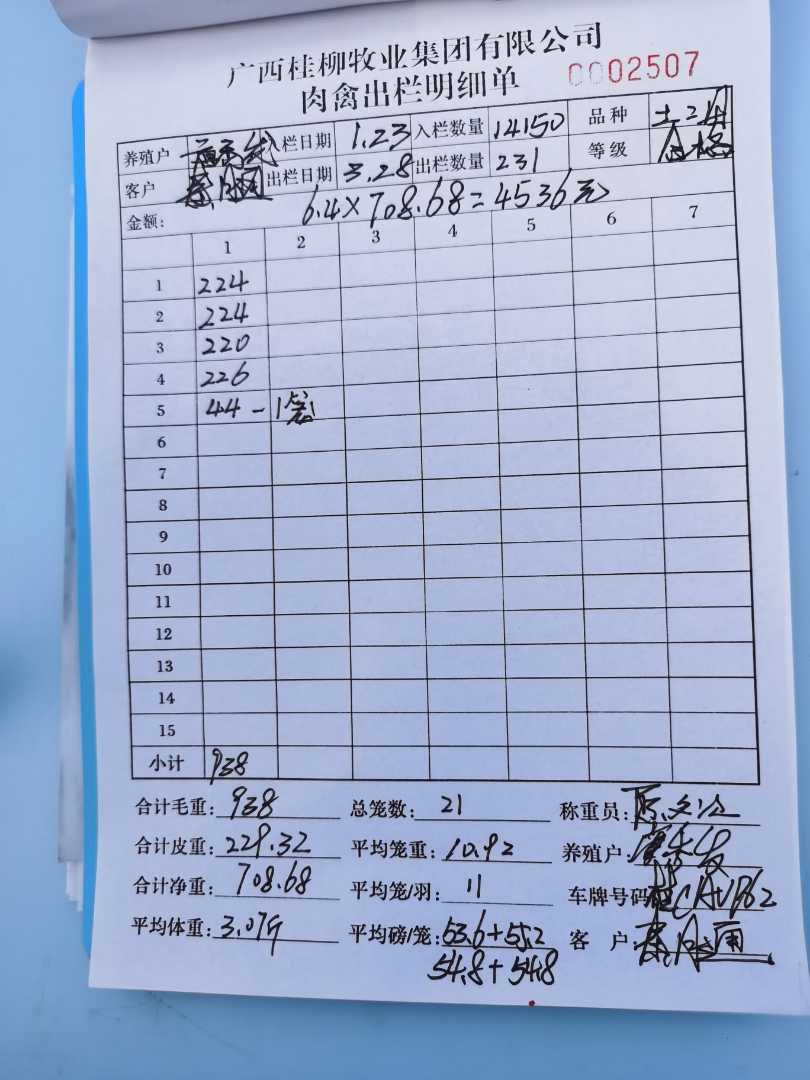 广西桂柳牧业集团有限公司
肉禽出栏明细单 0002507
养殖户 入栏日期 1.23 入栏数量 14150 品种 土2
客户 出栏日期 3.28 出栏数量 231 等级 合格
金额: 6.4×708.68=4536元
1 2 3 4 5 6 7
1 224
2 224
3 220
4 226
5 44-1笼
6
7
8
9
10
11
12
13
14
15
小计 938
合计毛重: 938 总笼数: 21 称重员:
合计皮重: 229.32 平均笼重: 10.92 养殖户:
合计净重: 708.68 平均笼/羽: 11 车牌号码
平均体重: 3.07 平均磅/笼: 53.6+55.2 客 户:
54.8+54.8